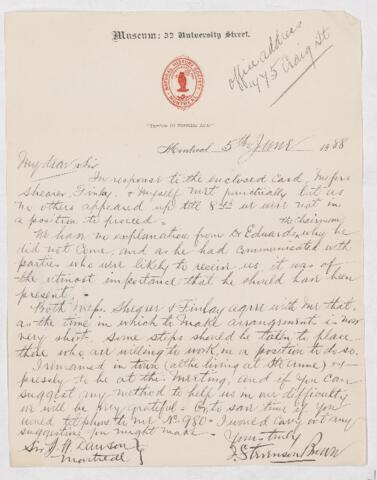 Museum: 32 University Street.
office address
475 Craig St
NATURAL HISTORY SOCIETY
MONTREAL
"TENTER IN NUBIBUS ARX"
Montreal 5th June 1888
My dear Sir
In response to the enclosed card, Messrs
Shearer, Finlay, & myself met punctually but as
no others appeared up till 8 we were not in
a position to proceed. the chairman
We have no explanation from Dr Edwards why he
did not come, and as he had communicated with
parties who were likely to receive us it was of
the utmost importance that he should have been
present.
Both Messrs. Shearer & Finlay agree with me that
as the time in which to make arrangements is now
very short, some steps should be taken to place
those who are willing to work, in a position to do so.
I remained in town (altho living at St Anne) ex-
pressly to be at the meeting, and if you can
suggest any method to help us in our difficulty
we will be very grateful. Or to save time if you
would telephone to me No 980 - I would carry out any
suggestion you might make.
Yours truly
J. Stevenson Brown
Sir J. W. Dawson
Montreal